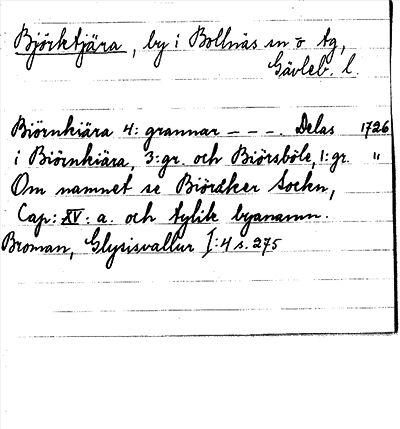 Björktjära, by i Bollnäs sn o tg,
Gävleb. l.
Biörnkiära 4: grannar - - -. Delas 1726
i Biörnkiära, 3: gr. och Biörsböle, 1: gr. "
Om namnet se Biöråker Sockn,
Cap: XV: a. och tylik byanamn.
Broman, Glysisvallur I: 4 s. 275